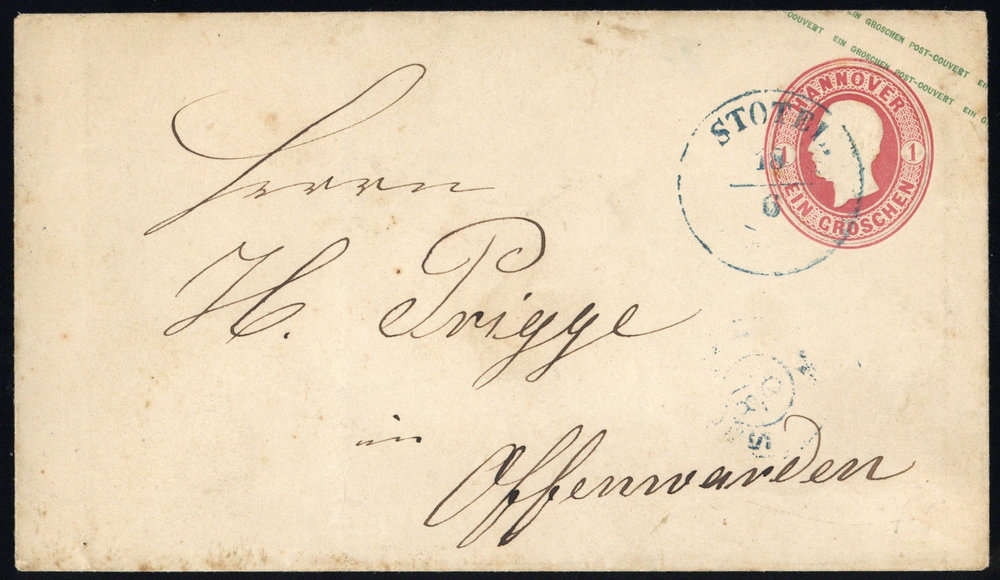 EIN GROSCHEN POST-COUVERT EIN
COUVERT EIN GROSCHEN POST-COUVERT EIN G
HANNOVER
1 1
EIN GROSCHEN
STOTEL
18
6
Herrn
H. Prigge
in
Offenwarden